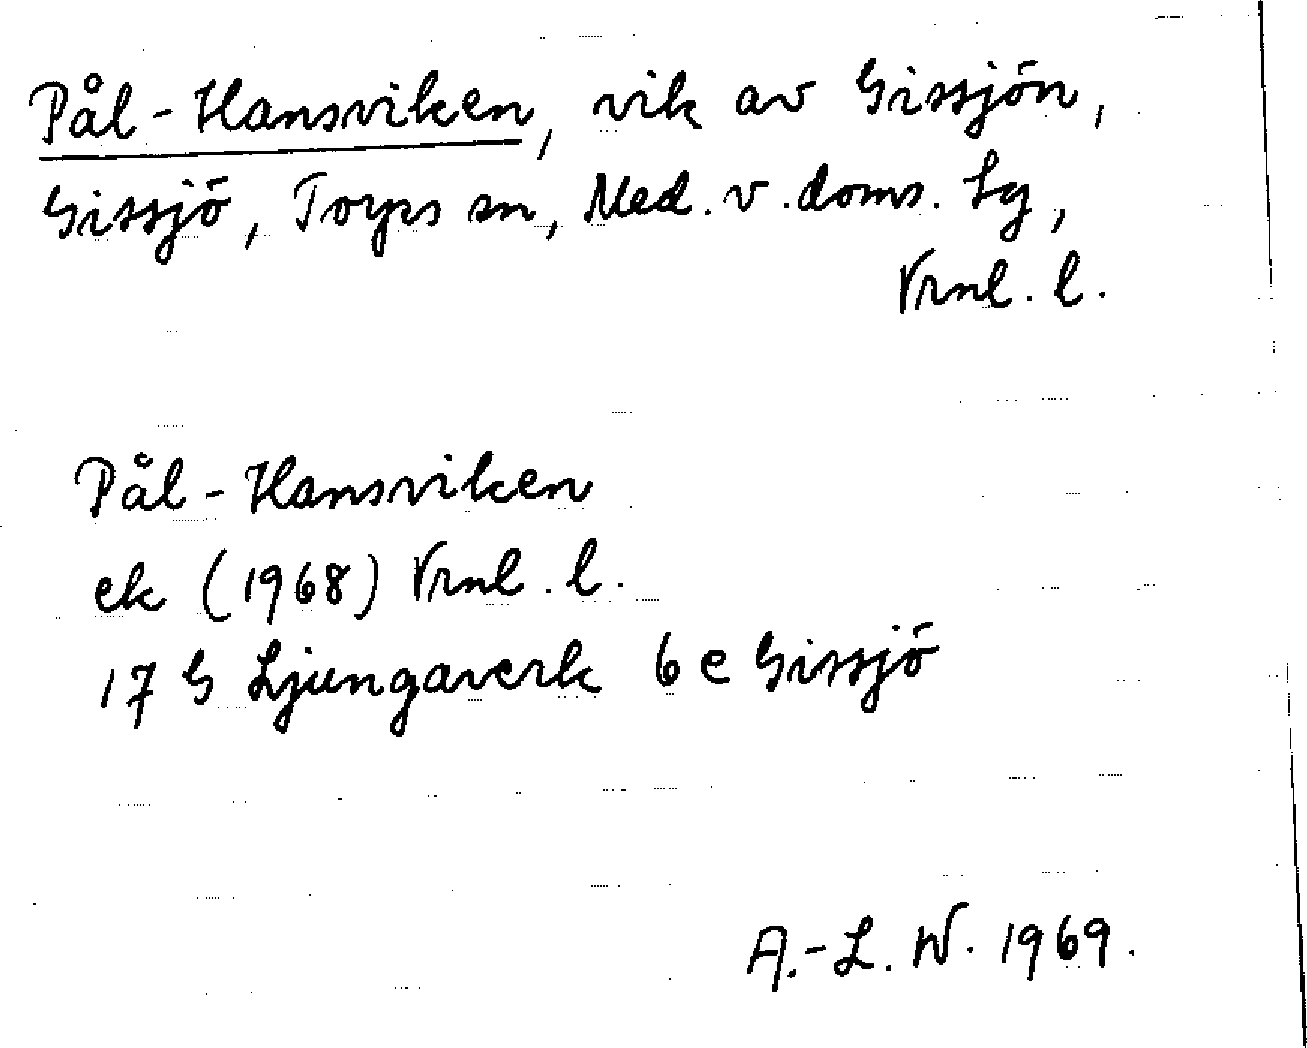 Pål-Hansviken, vik av Gissjön,
Gissjö, Torps sn, Med. v. doms. Lg,
Vrnl. l.
Pål-Hansviken
ek (1968) Vrnl. l.
17 G Ljungaverk 6 e Gissjö
A.-L. W. 1969.